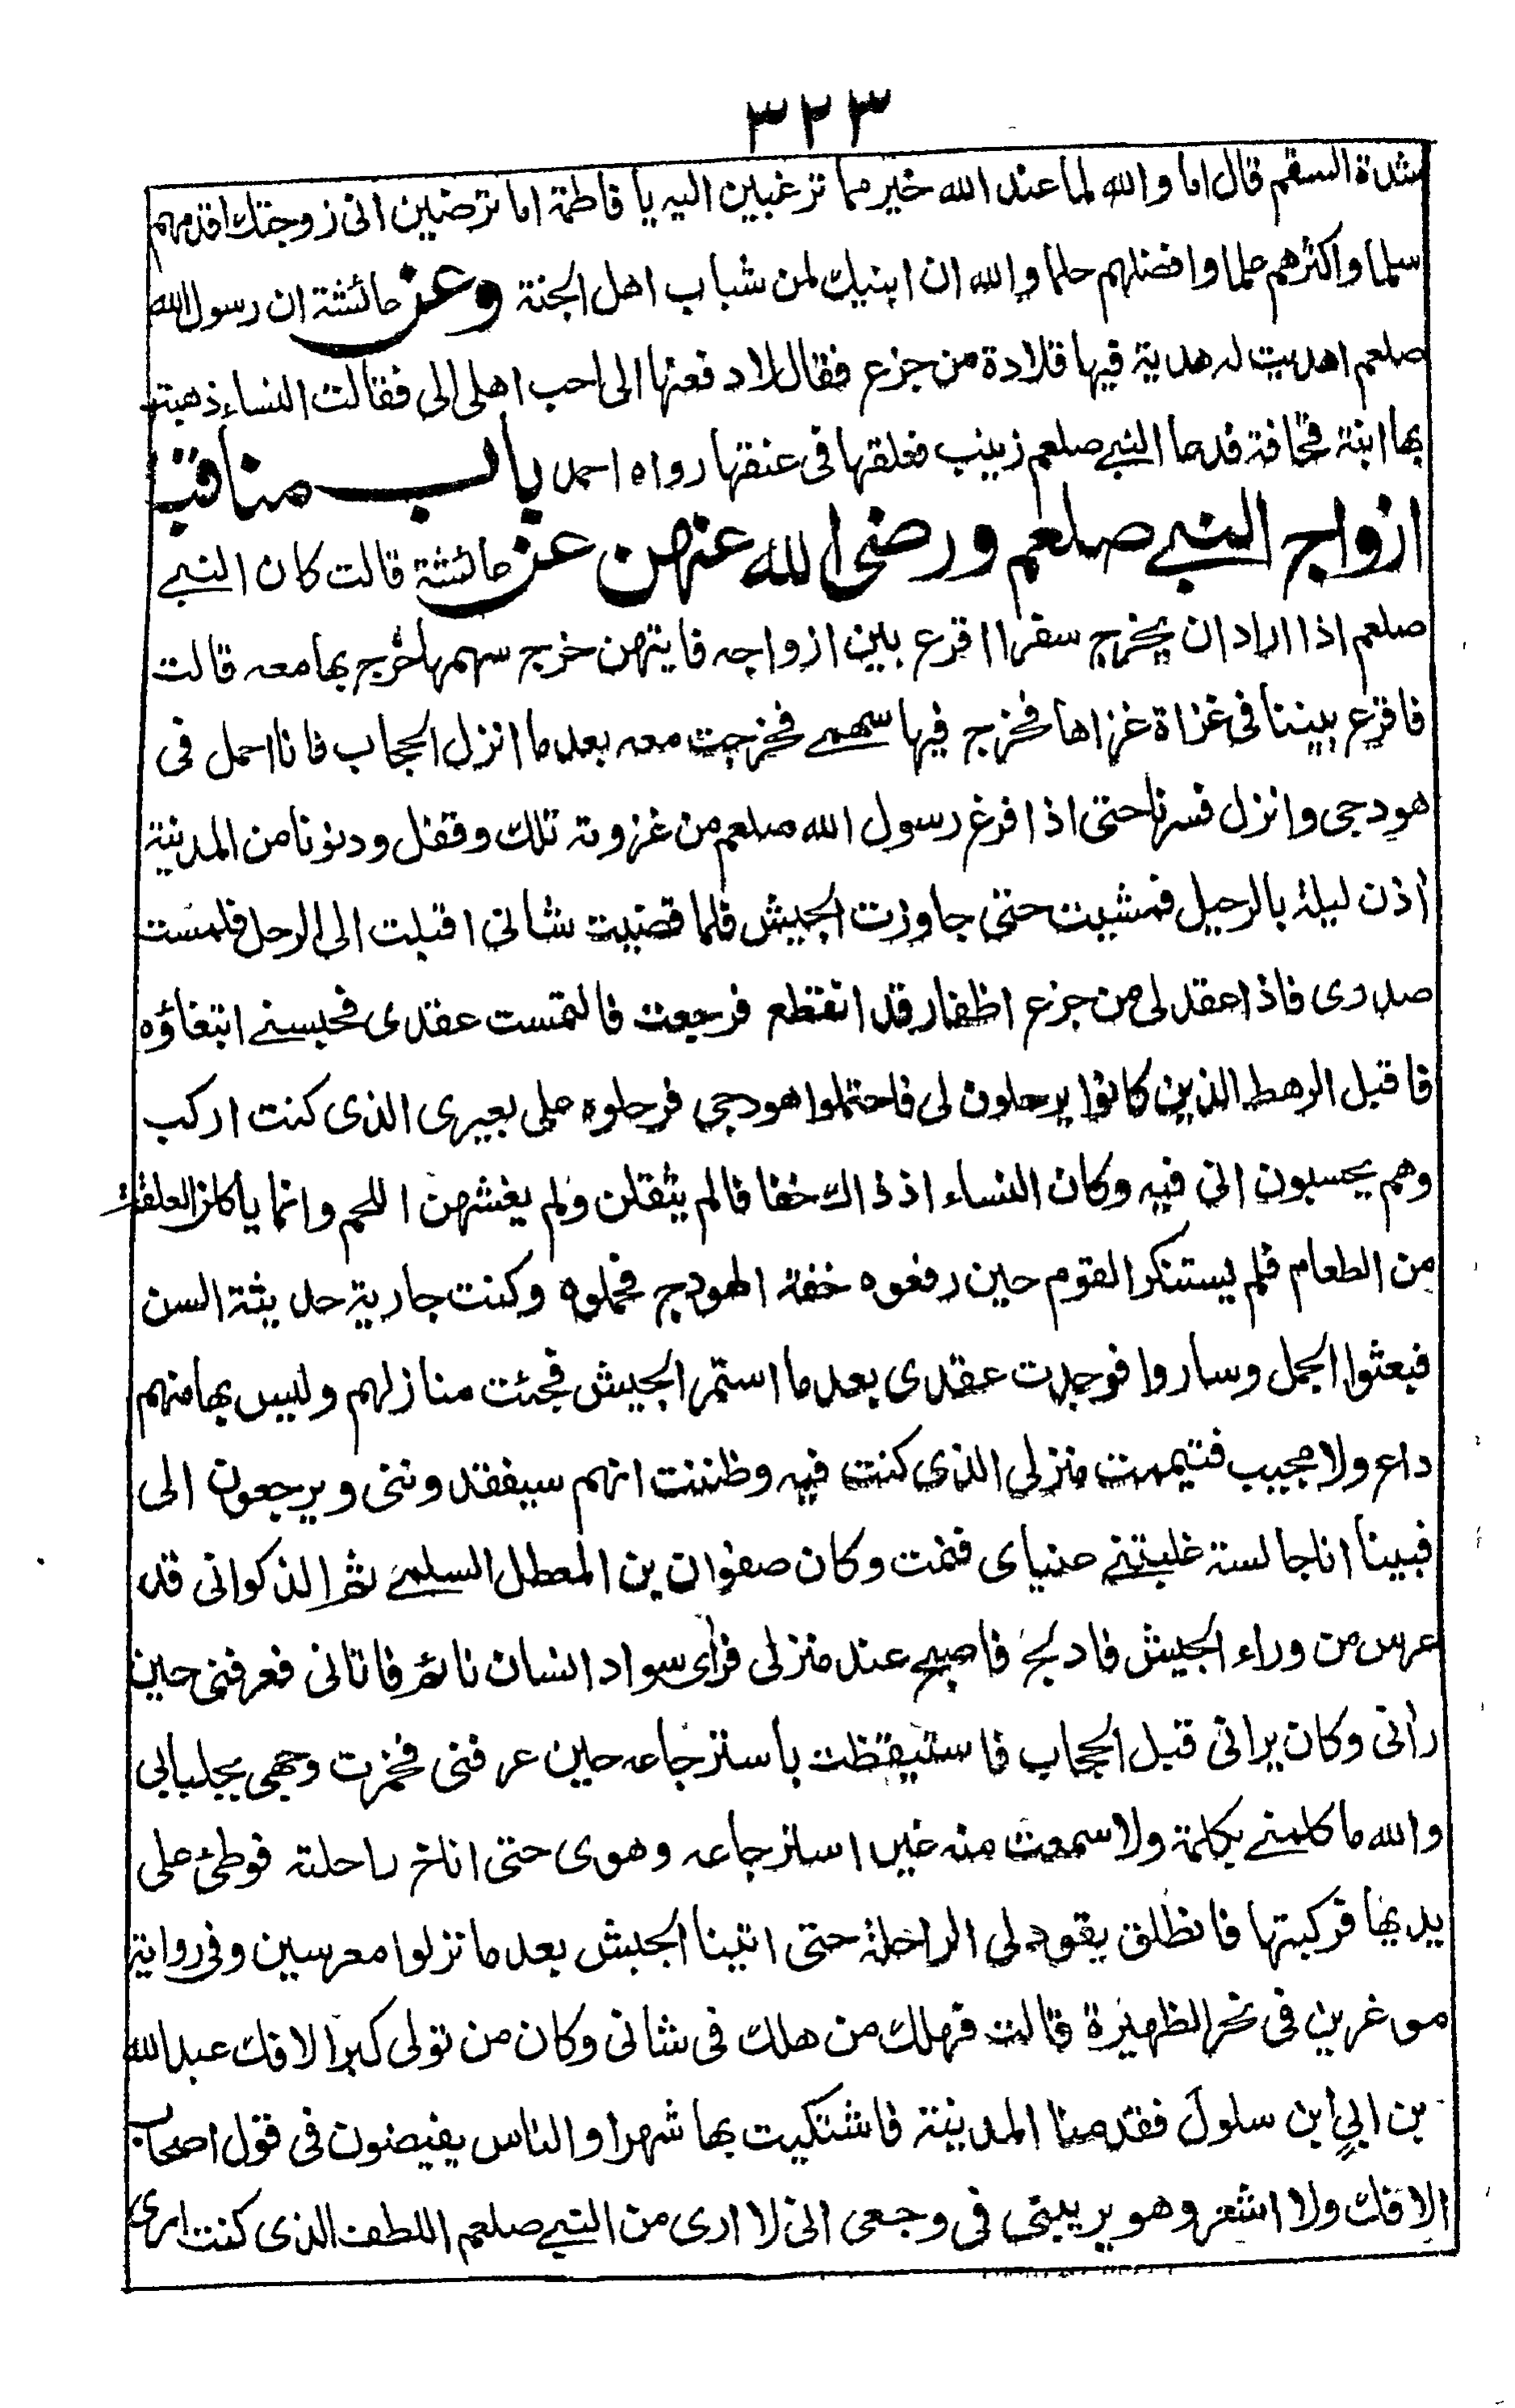 ٣٢٣
شدة السقم قال اما والله لما عند الله خير مما ترغبين اليه يا فاطمة اما ترضين انى زوجتك اقدمهم
سلما واكثرهم علما وافضلهم حلما والله ان ابنيك لمن شباب اهل الجنة وعن عائشة ان رسول الله
صلعم اهديت له هدية فيها قلادة من جزع فقال لادفعنها الى احب اهلى الى فقالت النساء ذهبت
بها ابنة قحافة فدعا النبى صلعم زينب فعلقها فى عنقها رواه احمد باب مناقب
ازواج النبى صلعم ورضى الله عنهن عن عائشة قالت كان النبى
صلعم اذا اراد ان يخرج سفرا اقرع بين ازواجه فايتهن خرج سهمها خرج بها معه قالت
فاقرع بيننا فى غزاة غزاها فخرج فيها سهمى فخرجت معه بعد ما انزل الحجاب فانا احمل فى
هودجى وانزل فسرنا حتى اذا فرغ رسول الله صلعم من غزوته تلك وقفل ودنونا من المدينة
أذن ليلة بالرحيل فمشيت حتى جاوزت الجيش فلما قضيت شانى اقبلت الى الرحل فلمست
صدرى فاذا عقد لى من جزع اظفار قد انقطع فرجعت فالتمست عقدى فحبسنى ابتغاؤه
فاقبل الرهط الذين كانوا يرحلون لى فاحتملوا هودجى فرحلوه على بعيرى الذى كنت اركب
وهم يحسبون انى فيه وكان النساء اذ ذاك خفافا لم يثقلن ولم يغشهن اللحم وانما ياكلن العلقة
من الطعام فلم يستنكر القوم حين رفعوه خفة الهودج فحملوه وكنت جارية حديثة السن
فبعثوا الجمل وساروا فوجدت عقدى بعد ما استمر الجيش فجئت منازلهم وليس بها منهم
داع ولا مجيب فتيممت منزلى الذى كنت فيه وظننت انهم سيفقدوننى ويرجعون الى
فبينا انا جالسة غلبتنى عنياى فنمت وكان صفوان بن المعطل السلمى ثم الذكوانى قد
عرس من وراء الجيش فادلج فاصبح عند منزلى فرأى سواد انسان نائم فاتانى فعرفنى حين
رأنى وكان يرانى قبل الحجاب فاستيقظت باسترجاعه حين عرفنى فخمرت وجهى بجلبابى
والله ما كلمنى بكلمة ولا سمعت منه غير استرجاعه وهوى حتى اناخ راحلته فوطئ على
يديها فركبتها فانطلق يقود لى الراحلة حتى اتينا الجيش بعد ما نزلوا معرسين وفى رواية
موغرين فى نحر الظهيرة قالت فهلك من هلك فى شانى وكان من تولى كبر الافك عبد الله
بن ابى ابن سلول فقدمنا المدينة فاشتكيت بها شهرا والناس يفيضون فى قول اصحاب
الافك ولا اشعر وهو يريبنى فى وجعى انى لا ارى من النبى صلعم اللطف الذى كنت ارى